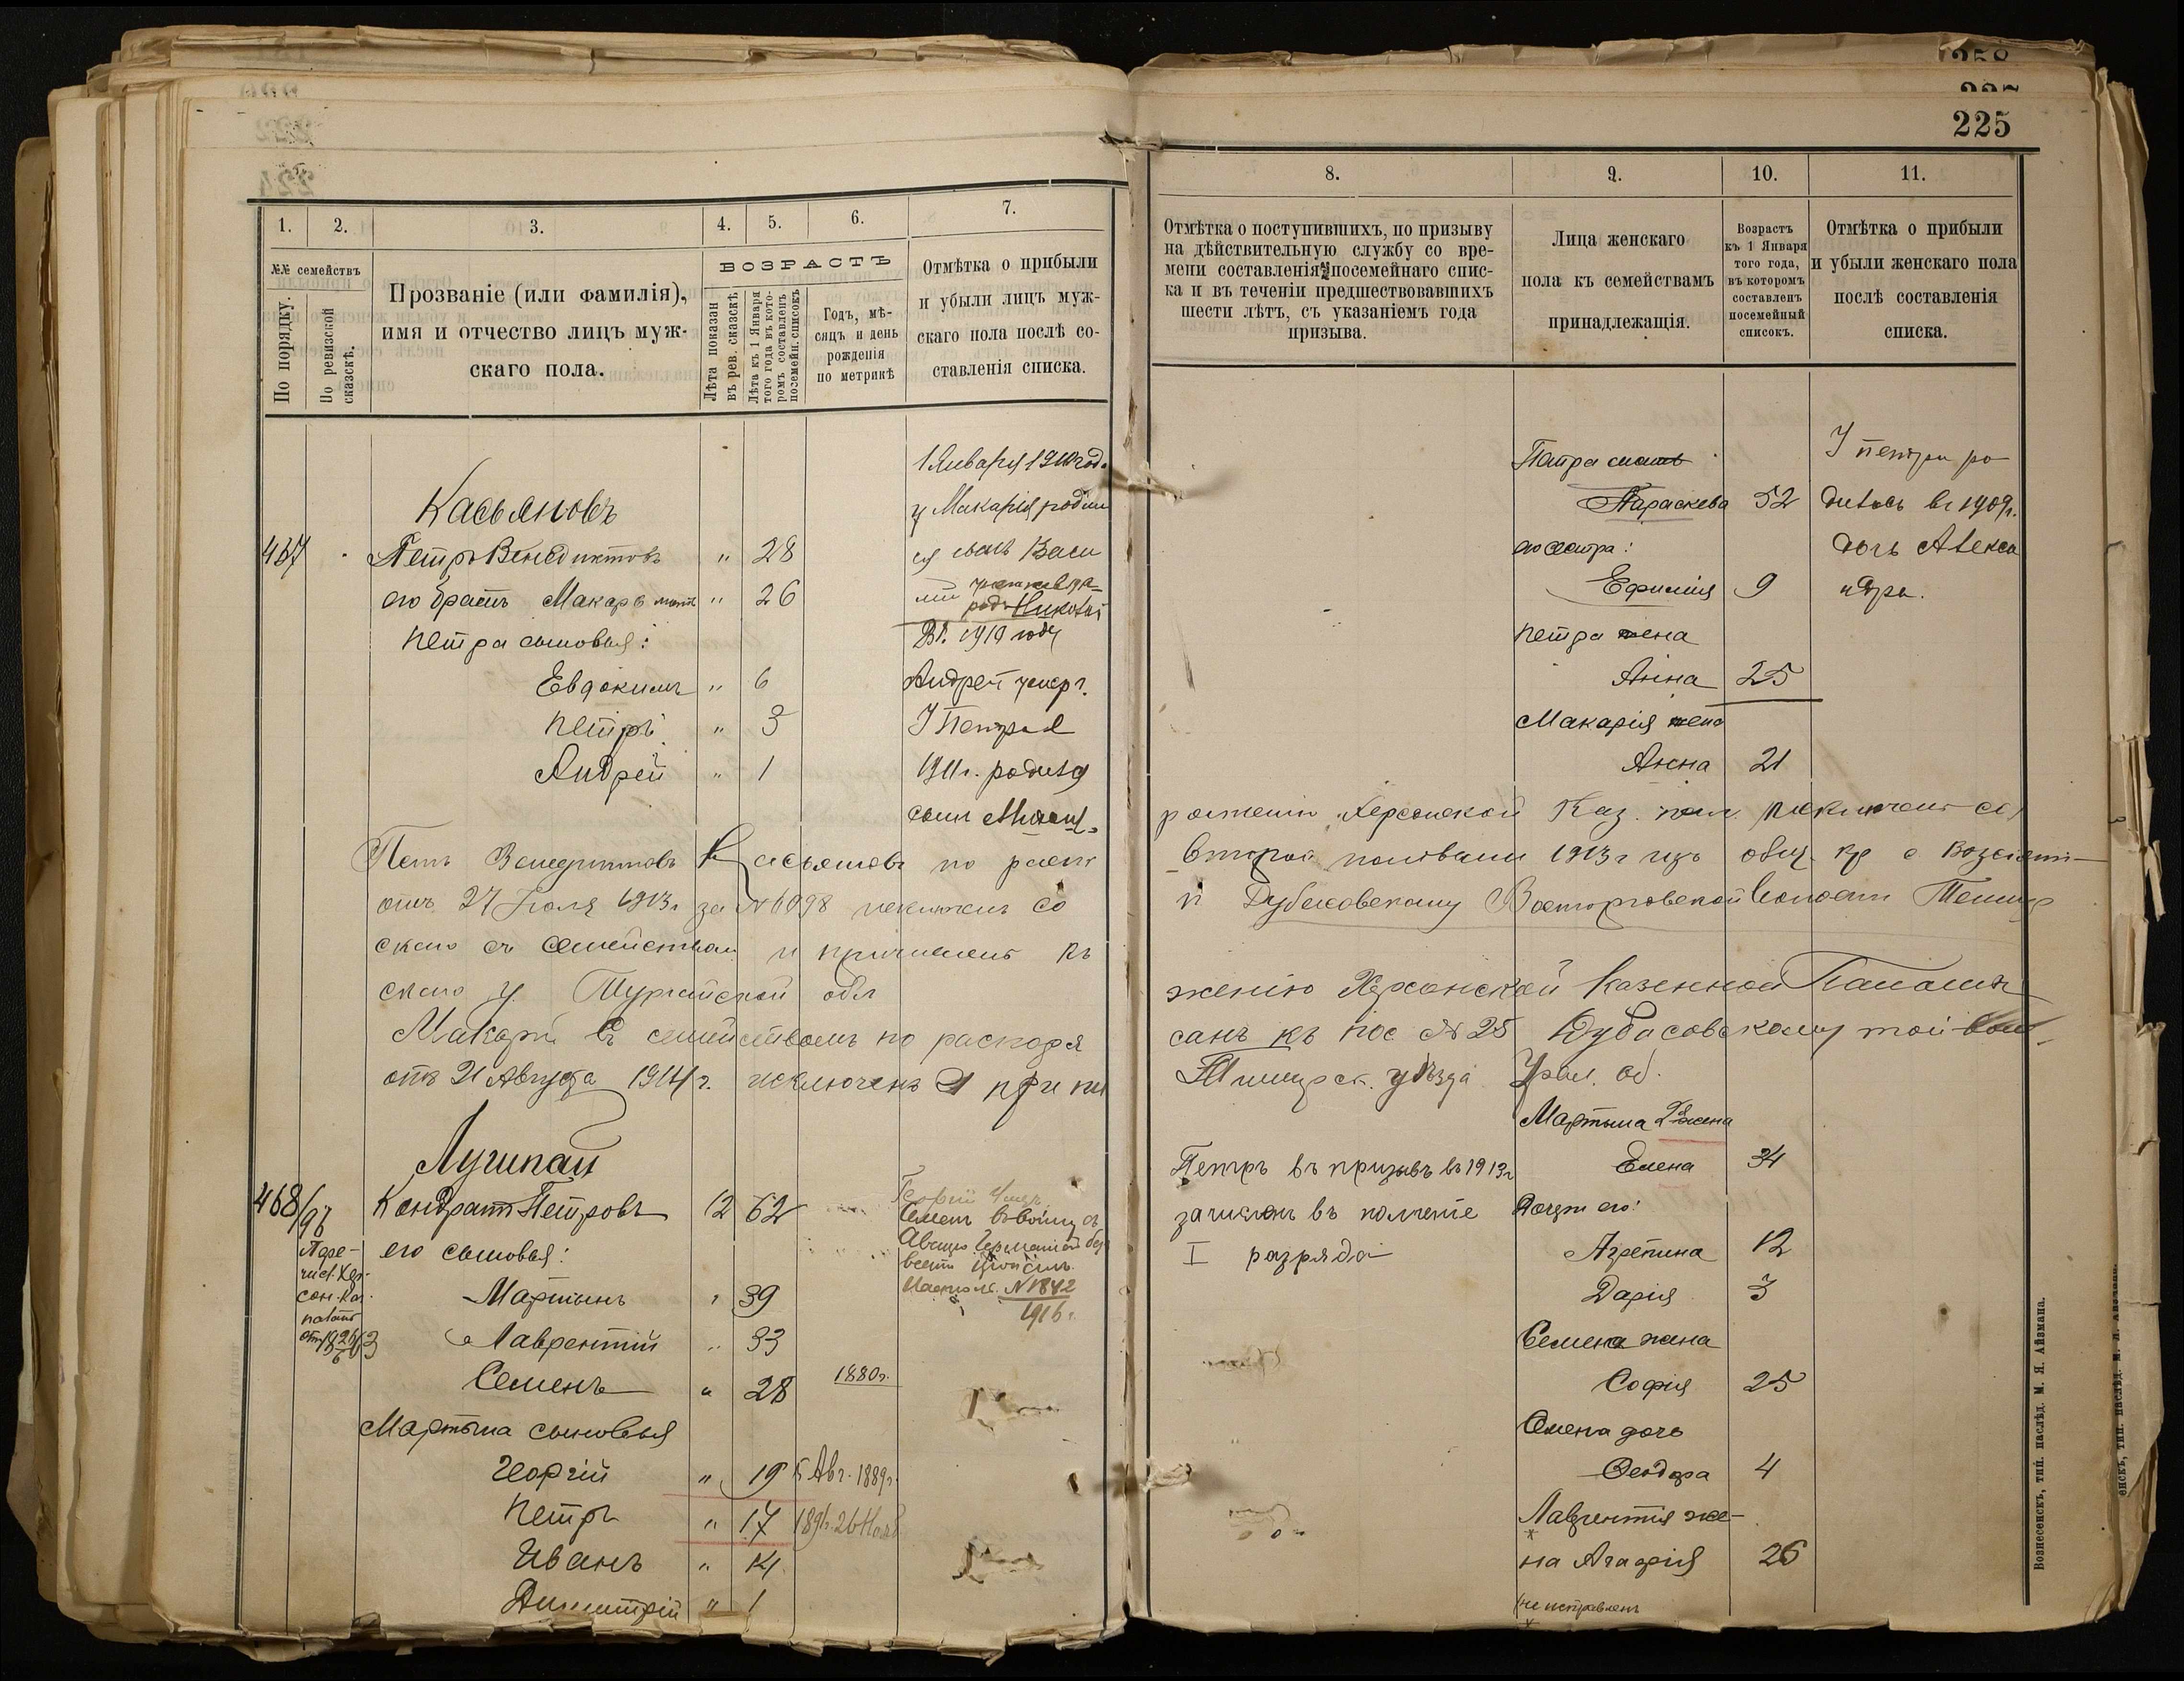 258
225
1.
2.
3.
4.
5.
6.
7.
№№ семействъ
По порядку.
По ревизской сказскѣ.
Прозваніе (или фамилія),
имя и отчество лицъ муж-
скаго пола.
ВОЗРАСТЪ
Лѣта показан въ рев. сказскѣ.
Лѣта къ 1 Января того года въ кото-
ромъ составленъ посемейн. списокъ
Годъ, мѣ-
сяцъ и день
рожденія
по метрикѣ
Отмѣтка о прибыли
и убыли лицъ муж-
скаго пола послѣ со-
ставленія списка.
1 Января 1910 года
Касьяновъ
у Макарія родил
467 Петръ Венедиктовъ " 28
ся сынъ Васи
его братъ Макаръ " 26
лій
родъ Николай
Петра сыновья:
Вѣ 1910 году
Евдокимъ " 6
Андрей умеръ.
Петръ " 3
У Петра в
Андрей " 1
1911 г. родился
сынъ
Петръ Венедиктовъ Касьяновъ по распо
отъ 27 Іюля 1913 г. за № 6098 исключенъ со
скаго съ семействомъ и причисленъ къ
скаго у Тургайской обл
Макарій съ семействомъ по распоря
отъ 21 Августа 1914 г. исключенъ и припи
Лучипай
468/96 Кондратъ Петровъ 12 62
его сыновья:
Пере-
числ. Хер-
сон. Каз.
палат
Мартынъ " 39
Лаврентій " 33
Семенъ " 28 1880 г.
Семенъ
№ 1842
1916 г.
Мартына сыновья
Георгій " 19 5 Авг. 1889 г.
Петръ " 17 1891 26 Нояб
Иванъ " 14
Димитрій " 1
8.
9.
10.
11.
Отмѣтка о поступившихъ, по призыву
на дѣйствительную службу со вре-
мени составленія посемейнаго спис-
ка и въ теченіи предшествовавшихъ
шести лѣтъ, съ указаніемъ года
призыва.
Лица женскаго
пола къ семействамъ
принадлежащія.
Возрастъ
къ 1 Января
того года,
въ которомъ
составленъ
посемейный
списокъ.
Отмѣтка о прибыли
и убыли женскаго пола
послѣ составленія
списка.
Петра мать
У Петра ро-
Параскева 52
дилась въ 1909 г.
его сестра:
дочь Алекса
Ефимія 9
ндра.
Петра жена
Анна 25
Макарія жена
Анна 21
ряженію Херсонской Каз. пал. исключенъ со
второй половины 1913 г изъ общ. кр с. Вознесен-
п Дубасовскому Восторговской волости Темир
женію Херсонской Казенной Палаты
санъ къ пос № 25 Дубасовскому той-вол.
Темирск. уѣзда Урал. об.
Мартына 2 жена
Елена 34
Петръ въ призывъ въ 1913 г
зачисленъ въ ополченіе
I разряда
Дочери его:
Агрепина 12
Дарія 3
Семена жена
Софія 25
Семена дочь
Феодора 4
Лаврентія же-
на Агафія 26
не исправленъ
Вознесенскъ, тип. наслѣд. М. Я. Айзмана.